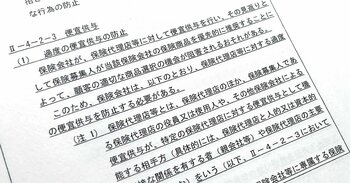 な行為の防止
Ⅱ-4-2-3 便宜供与の防止
(1) 過度の便宜供与の防止
保険会社が、保険代理店等に対して便宜供与を行い、その見返りと
して保険募集人が当該保険会社の保険商品を優先的に推奨することに
よって、顧客の適切な商品選択の機会が阻害されるおそれがある。
このため、保険会社は、以下のとおり、保険代理店等に対する過度
の便宜供与を防止する必要がある。
(注1) 保険代理店等とは、保険代理店のほか、保険募集人であ
る保険代理店の役員又は使用人や、その他保険会社による
便宜供与が、特定の保険代理店に対する便宜供与として機
能する相手方(具体的には、保険代理店と人的又は資本的
な関係を有する者(親会社等)や保険代理店の主
をいう(以下、Ⅱ-4-2-3において
会社等に専属する保険